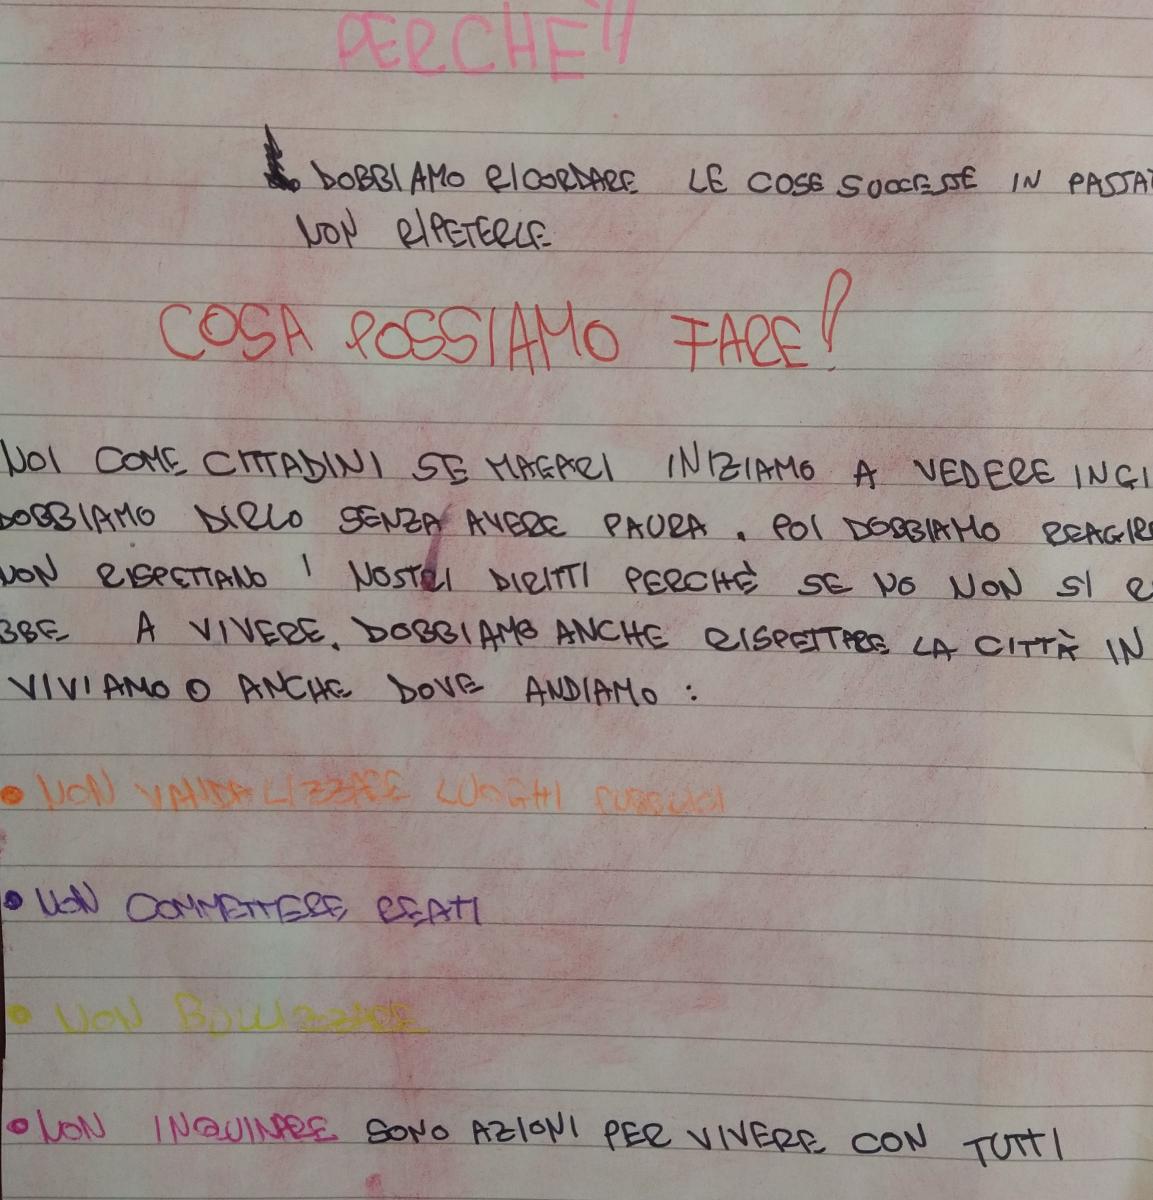 PERCHÈ!!
DOBBIAMO RICORDARE LE COSE SUCCESSE IN PASSAT
NON RIPETERLE
COSA POSSIAMO FARE!
NOI COME CITTADINI SE MAGARI INIZIAMO A VEDERE INGI
DOBBIAMO DIRLO SENZA AVERE PAURA. POI DOBBIAMO REAGIR
NON RISPETTANO I NOSTRI DIRITTI PERCHÈ SE NO NON SI R
BBE A VIVERE. DOBBIAMO ANCHE RISPETTARE LA CITTÀ IN
VIVIAMO O ANCHE DOVE ANDIAMO:
• NON VANDALIZZARE LUOGHI PUBBLICI
• NON COMMETTERE REATI
• NON BULLIZZARE
• NON INQUINARE SONO AZIONI PER VIVERE CON TUTTI